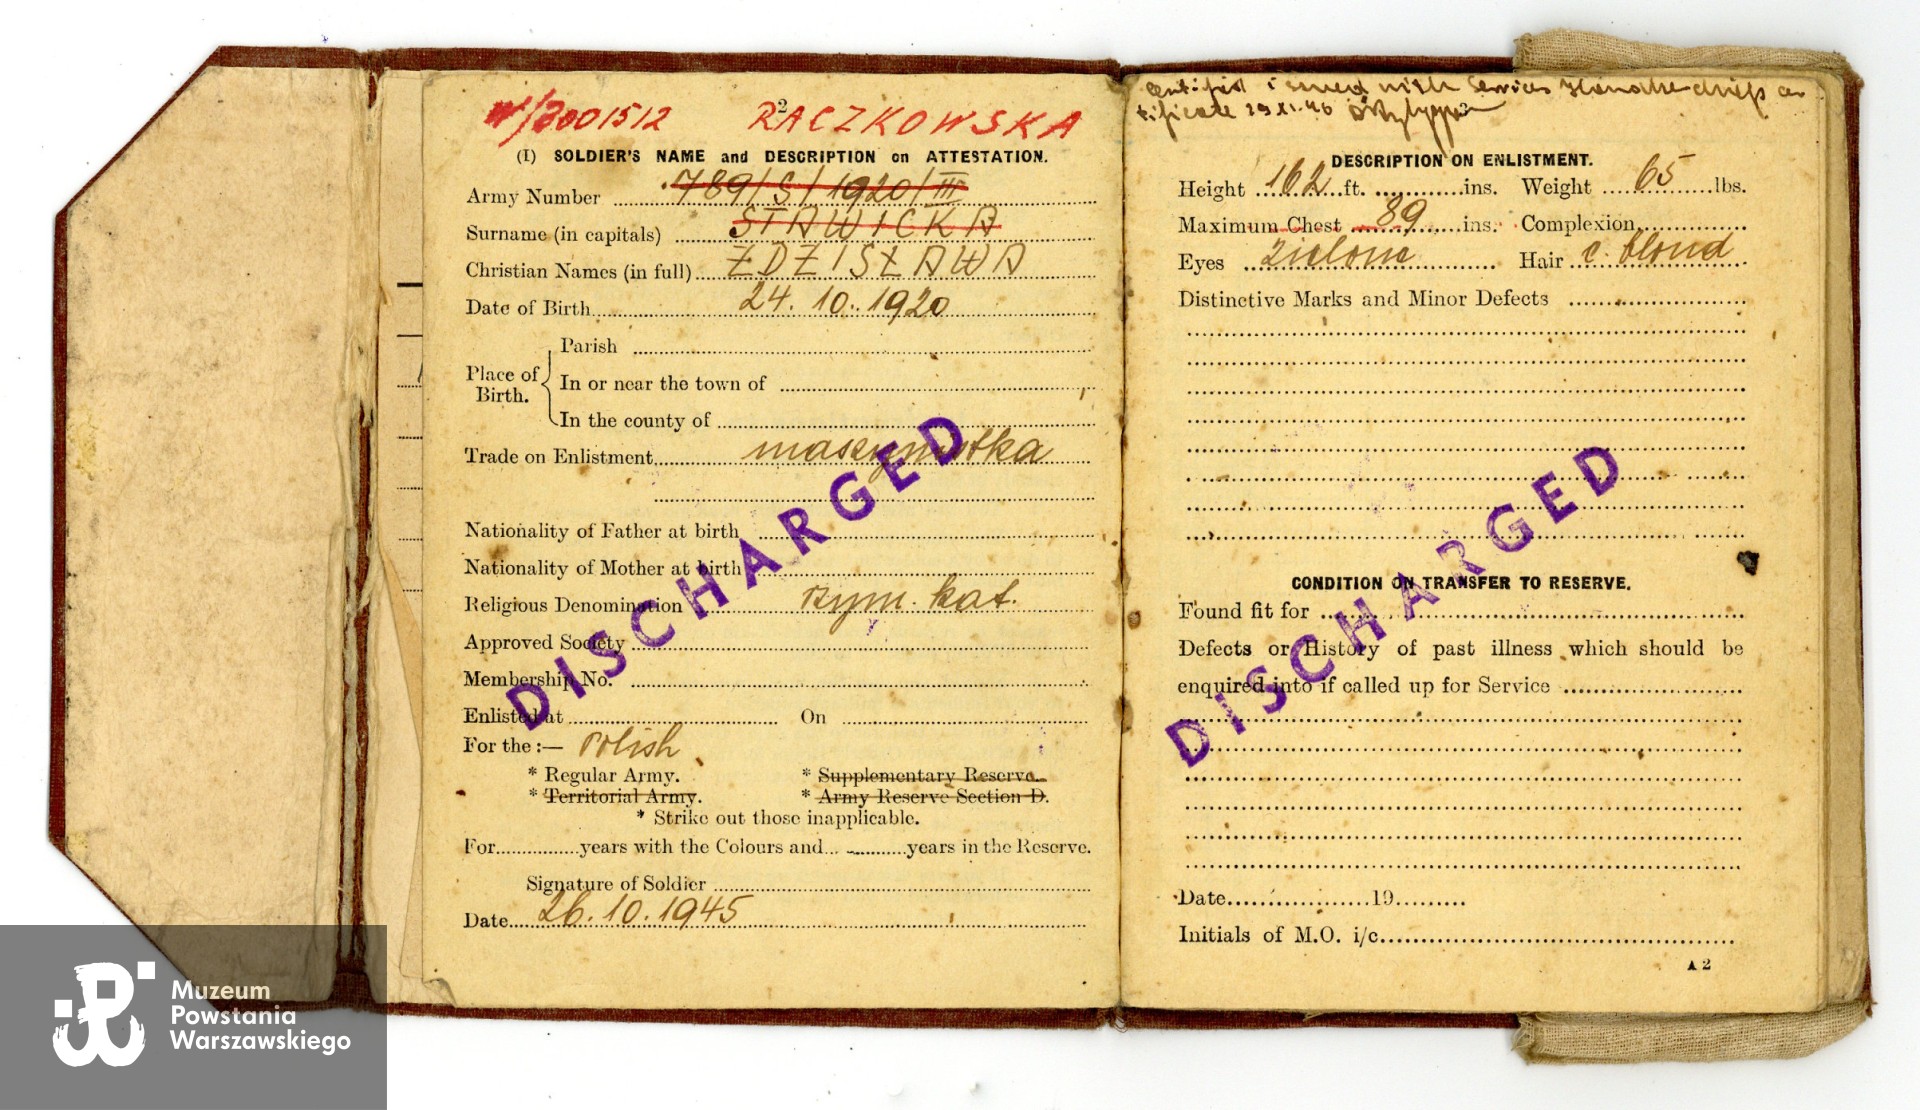 2
W/3001512 RACZKOWSKA
(I) SOLDIER'S NAME and DESCRIPTION on ATTESTATION.
Army Number 789/S/1920/III
Surname (in capitals) STAWICKA
Christian Names (in full) ZDZISŁAWA
Date of Birth 24.10.1920
Place of Birth.
Parish
In or near the town of
In the county of
Trade on Enlistment maszynistka
Nationality of Father at birth
Nationality of Mother at birth
Religious Denomination rzym. kat.
Approved Society
Membership No.
Enlisted at On
For the :— Polish
* Regular Army. * Supplementary Reserve.
* Territorial Army. * Army Reserve Section D.
* Strike out those inapplicable.
For years with the Colours and years in the Reserve.
Signature of Soldier
Date 26.10.1945
DISCHARGED
issued with Service
tificate 29 XI. 46
3
DESCRIPTION ON ENLISTMENT.
Height 162 ft. ins. Weight 65 lbs.
Maximum Chest 89 ins. Complexion
Eyes zielone Hair c. blond
Distinctive Marks and Minor Defects
CONDITION ON TRANSFER TO RESERVE.
Found fit for
Defects or History of past illness which should be
enquired into if called up for Service
Date 19
Initials of M.O. i/c
A 2
DISCHARGED
Muzeum
Powstania
Warszawskiego